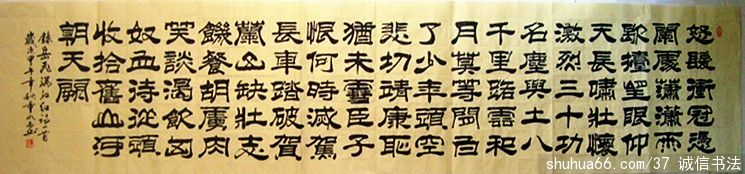 怒髮衝冠憑
闌處瀟瀟雨
歇擡望眼仰
天長嘯壯懷
激烈三十功
名塵與土八
千里路雲和
月莫等閑白
了少年頭空
悲切靖康恥
猶未雪臣子
恨何時滅駕
長車踏破賀
蘭山缺壯志
饑餐胡虜肉
笑談渴飲匈
奴血待從頭
收拾舊山河
朝天闕
錄岳飛滿江紅詞一首
歲次甲午年
shuhua66.com/37 诚信书法